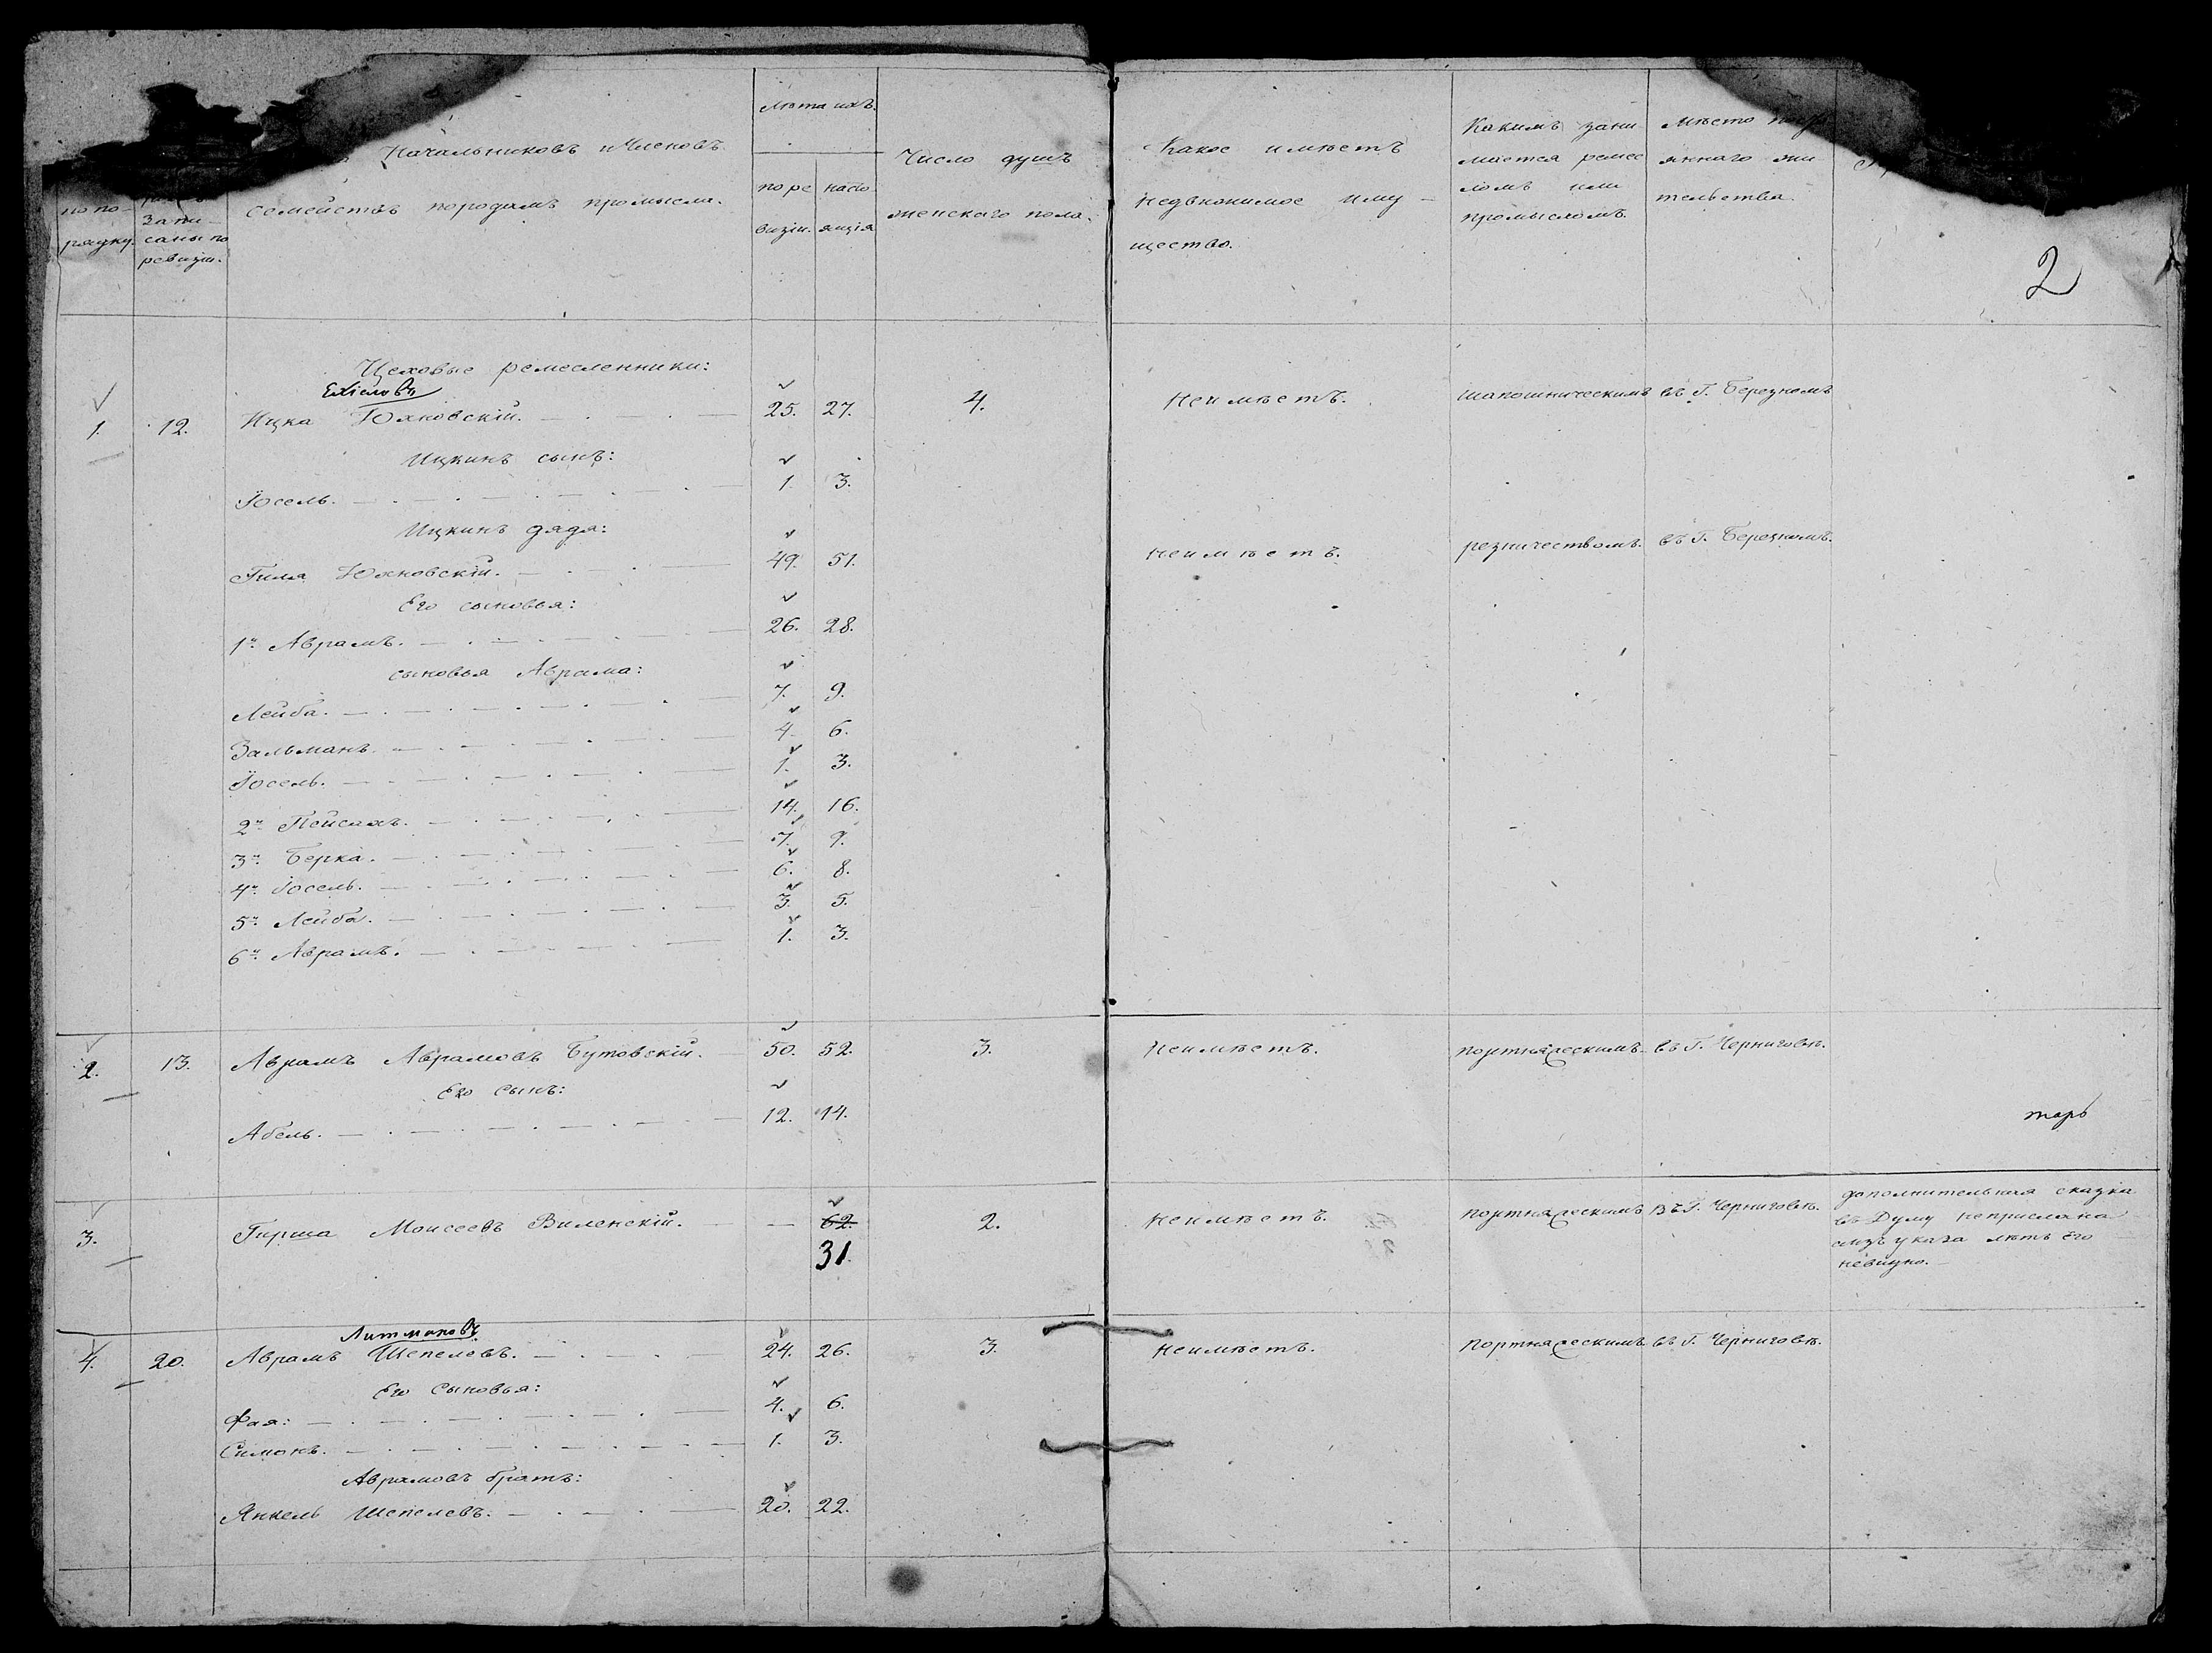 Начальниковъ и Членовъ
семействъ породамъ промысла.
по по-
рядку.
запи-
саны по
ревизіи.
Лѣта ихъ.
по ре
визіи.
насто
ящія
Число душъ
женскаго пола.
Какое имѣетъ
недвижимое иму-
щество.
Какимъ зани-
мается ремес
ломъ или
промысломъ.
Мѣсто
яннаго жи
тельства.
2
Цеховые ремесленники:
Ехіеловъ
1. 12. Ицка Юхновскій. 25. 27. 4. Неимѣетъ. шапошническимъ въ Г. Березномъ
Ицкинъ сынъ:
Іосель. 1. 3.
Ицкинъ дядя:
Гиля Юхновскій. 49. 51. Неимѣетъ. резничествомъ. въ Г. Березномъ.
Его сыновья:
1й Аврамъ. 26. 28.
сыновья Аврама:
Лейба. 7. 9.
Зальманъ. 4. 6.
Іосель. 1. 3.
2й Пейсахъ. 14. 16.
3й Берка. 7. 9.
4й Іосель. 6. 8.
5й Лейба. 3. 5.
6й Аврамъ. 1. 3.
2. 13. Аврамъ Аврамовъ Бутовскій. 50. 52. 3. Неимѣетъ. портняческимъ. въ Г. Черниговѣ.
Его сынъ:
Абель. 12. 14.
тарь
3. Гирша Моисеевъ Виленскій. — 62. 2. Неимѣетъ. портняческимъ въ Г. Черниговѣ.
31.
дополнительная сказка
въ Думу неприслана
а изъ указа лѣтъ его
невидно.
Литмановъ
4. 20. Аврамъ Шепелевъ. 24. 26. 3. Неимѣетъ. портняческимъ въ Г. Черниговѣ.
Его сыновья:
Фая: 4. 6.
Симонъ. 1. 3.
Аврамовъ братъ:
Янкель Шепелевъ. 20. 22.